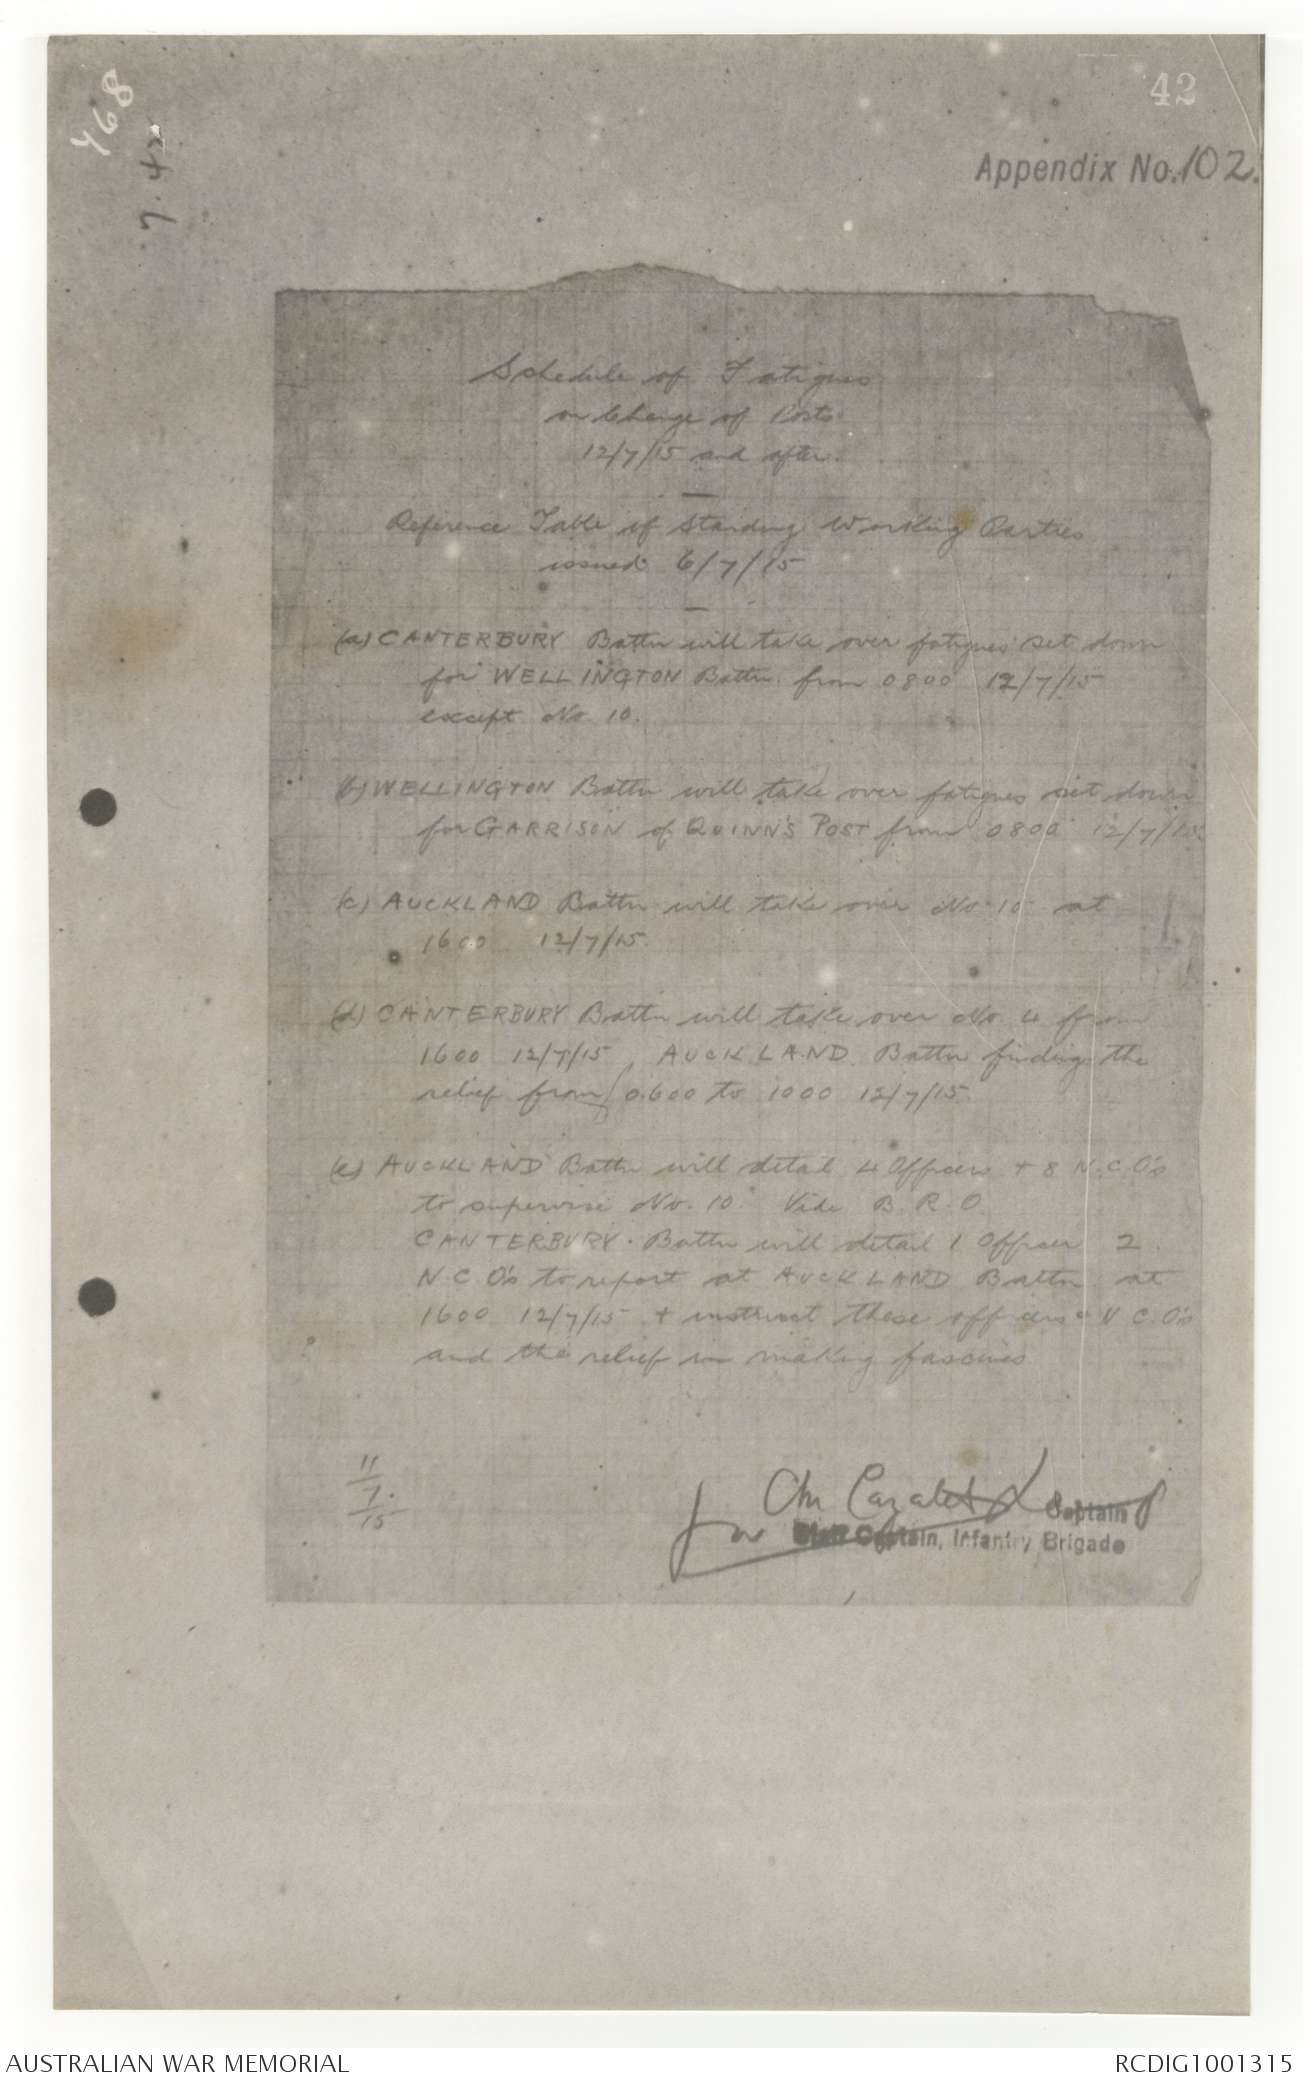 468
7.42
42
Appendix No. 102.
Schedule of Fatigues
on Change of Posts
12/7/15 and after.
Reference Table of Standing Working Parties
issued 6/7/15
(a) CANTERBURY Battn will take over fatigues set down
for WELLINGTON Battn. from 0800 12/7/15
except No. 10.
(b) WELLINGTON Battn will take over fatigues set down
for GARRISON of QUINN'S POST from 0800 12/7/15
(c) AUCKLAND Battn will take over No. 10 at
1600 12/7/15.
(d) CANTERBURY Battn will take over No. 4 from
1600 12/7/15, AUCKLAND Battn finding the
relief from 0600 to 1000 12/7/15.
(e) AUCKLAND Battn will detail 4 Officers + 8 N.C.O's
to supervise No. 10. Vide B.R.O.
CANTERBURY. Battn will detail 1 Officer 2
N.C.O's to report at AUCKLAND Battn at
1600 12/7/15 + instruct these officers & N.C.O's
and the relief in making fascines
11
7.
15
Captain
for Staff Captain, Infantry Brigade
AUSTRALIAN WAR MEMORIAL
RCDIG1001315